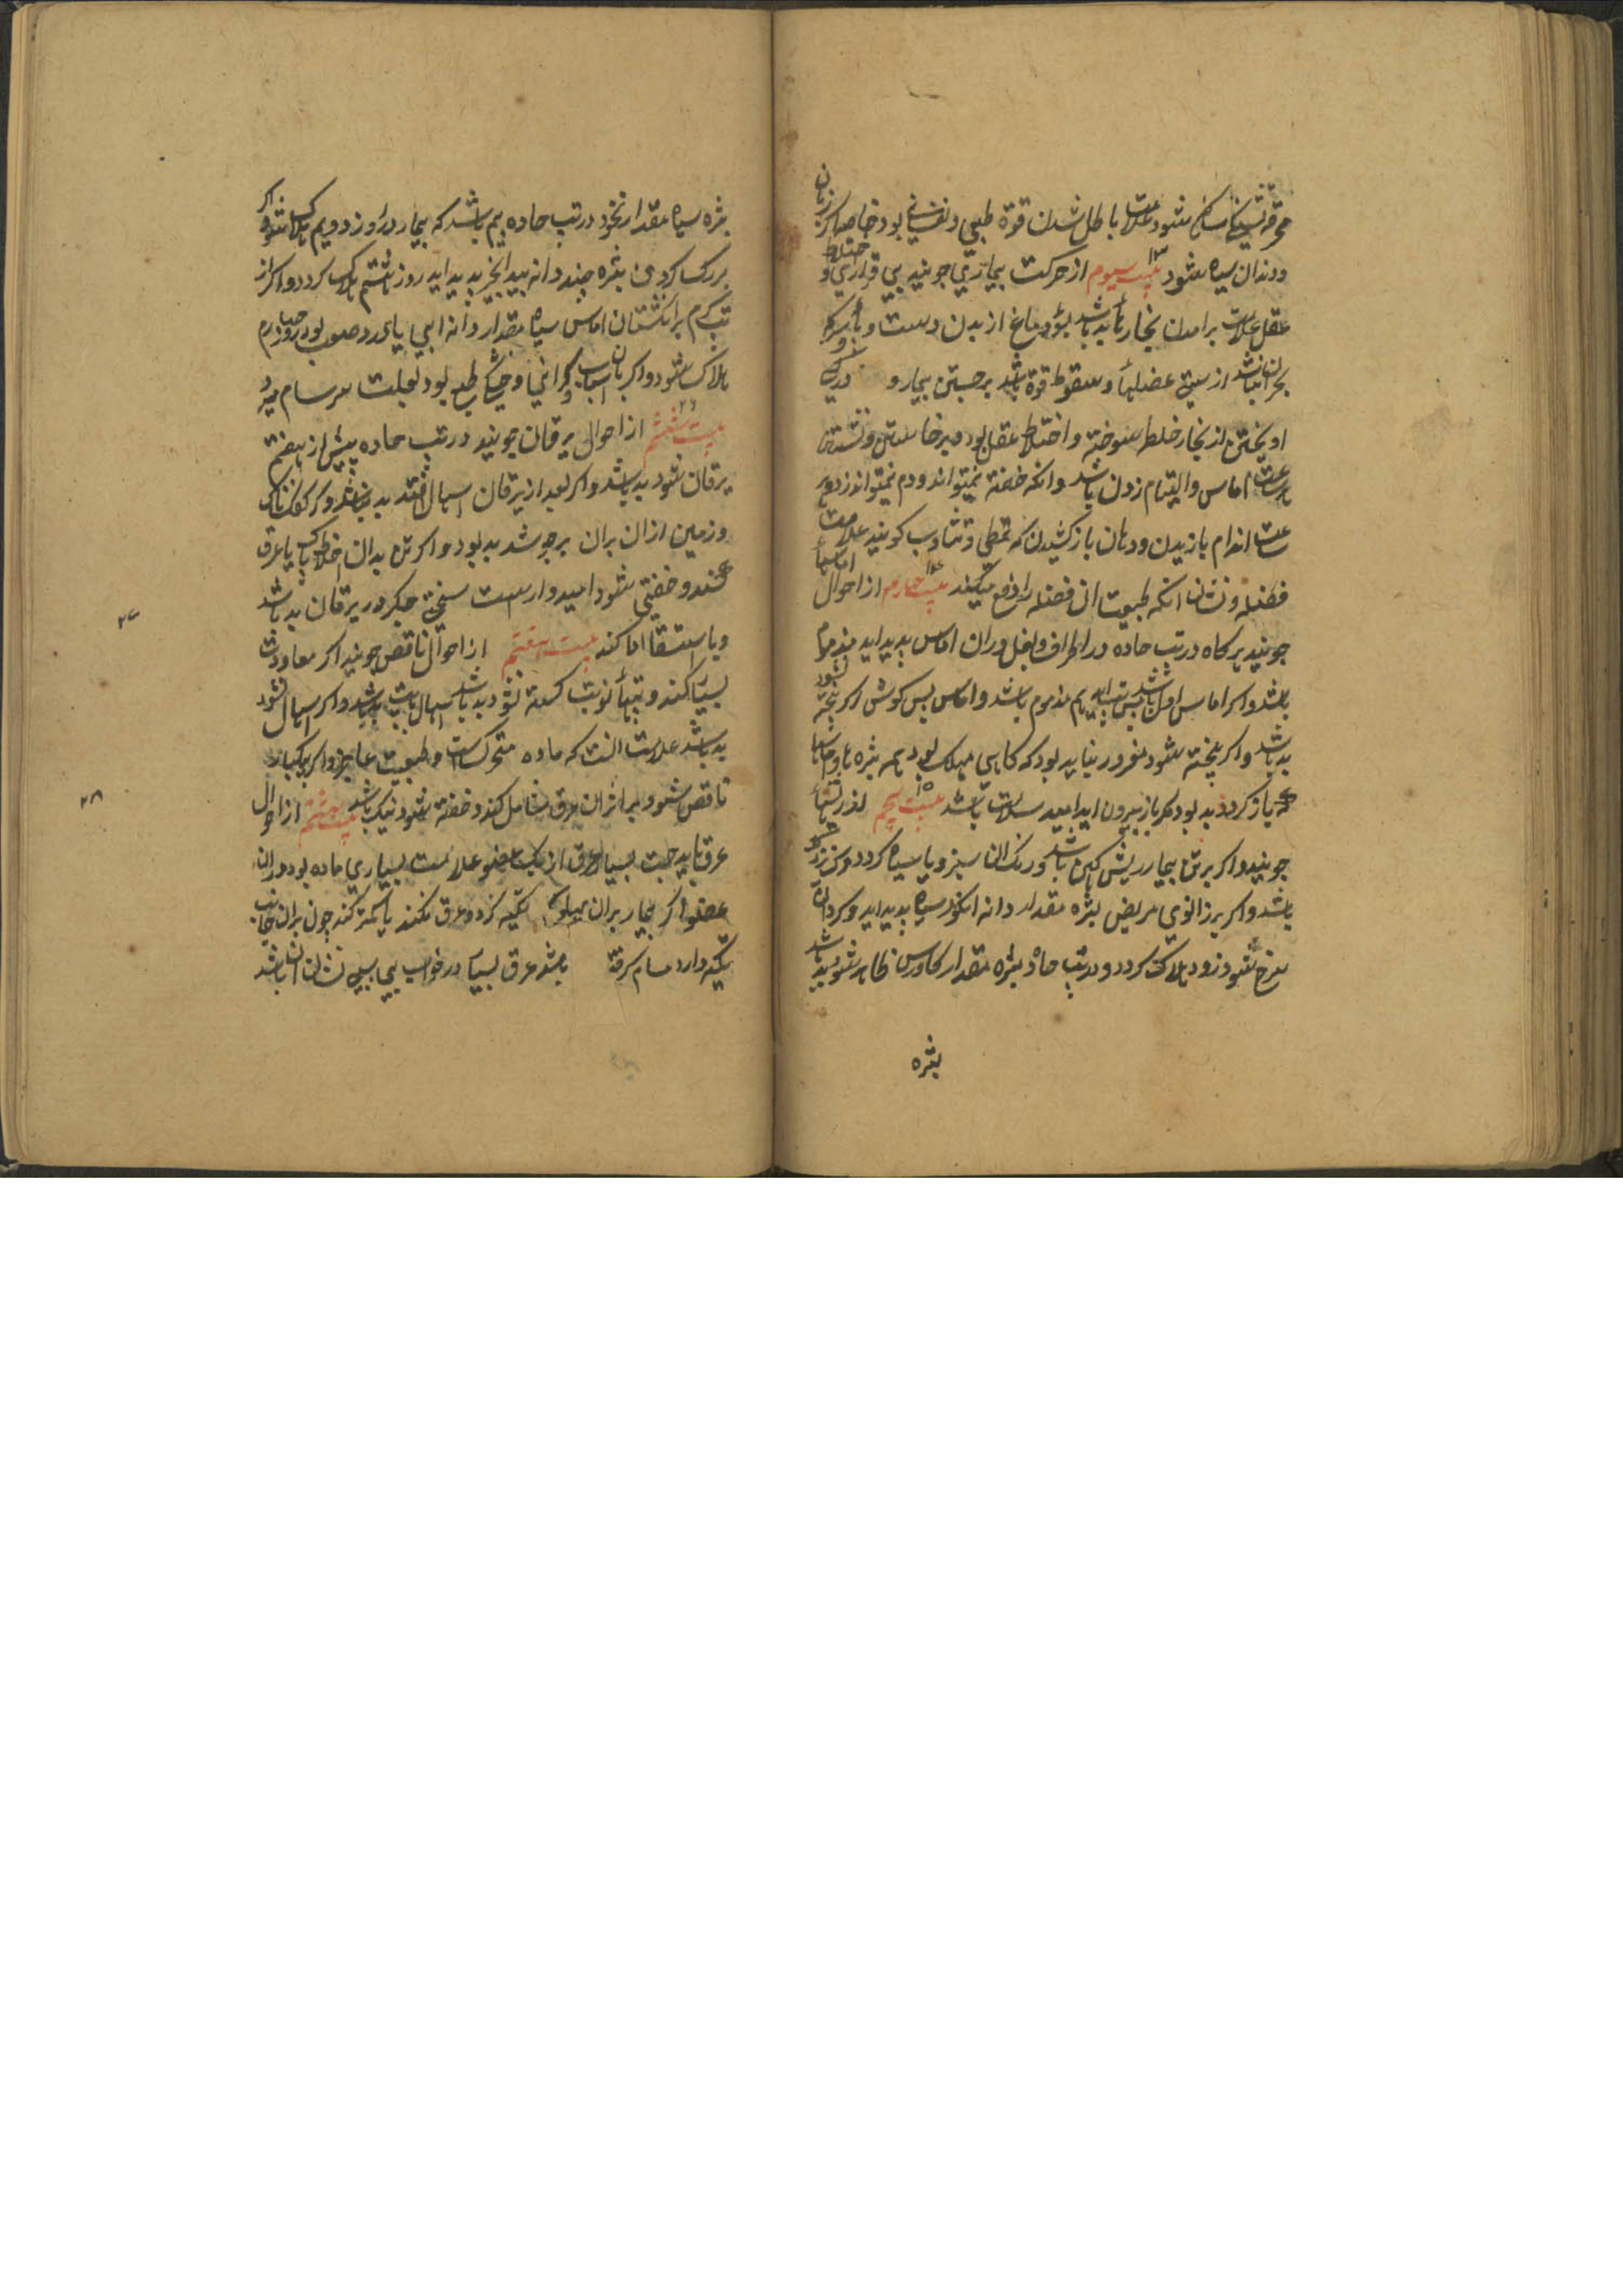 محرقه تشنگی ساکن شود علامت باطل شدن قوة طبیعی و نفسانی بود خاصه اکر زبان
و دندان سیاه شود بیست سیوم از حرکت بیماری جویند بی قراری و اختلاط
عقل علامت برامدن بخارها بد باشد بسوی دماغ از بدن دست و پا سرد
بحران نباشد از سستی عضلها و سقوط قوة باشد برجستن بیمار و
اویختن از بخار خلط سوخته و اختلاط عقل بود میر خاستن و نشستن
اماس و التیام زدن باشد و انکه خفته نمیتواند و دم نمیتواند زد
ساعت اندام یازیدن و دهان باز کشیدن که تمطی و تثاوب کویند علامت
فضله و نشان انکه طبیعت ان فضله را دفع میکند بیست چهارم از احوال اماسها
جویند هرکاه در تب حاده در اطراف و بغل و ران اماس پدید اید مذموم
باشد و اکر اماس اول باشد پس تب اید هم مذموم باشد و اماس پس کوش اکر پخته نشود
بد باشد و اکر پخته شود مغرور نباید بود که کاهی مهلک بود همه بثره ها و اماسها
که باز کردد بد بود مکر باز بیرون اید امید سلامت باشد بیست پنجم از ریشها
جویند و اکر بر تن بیمار ریش کهن باشد و رنک ان سبز و یا سیاه کردد
باشد و اکر بر زانوی مریض بثره مقدار دانه انکور سیاه پدید اید و کرد ان
سرخ شود زود هلاک کردد و در تب حاد بثره مقدار کاورس ظاهر شود بد باشد
بثره
بثره سیاه مقدار نخود در تب حاده بیم باشد که بیمار در روز دویم هلاک شود و اکر
بر رک کردن بثره چند دانه بید انجیر پدید اید روز هشتم هلاک کردد و اکر از
تب کرم بر انکشتان اماس سیاه مقدار دانه ابی یا درد صعب بود روز چهارم
هلاک شود و اکر با ان اسباب کرانی و خشکی طبع بود بعلت سرسام میرد
بیست ششم از احوال یرقان جویند در تب حاده پیش از هفتم
یرقان شود بد باشد و اکر بعد از یرقان اسهال افتد بد نباشد
و زمین از ان بران برجوشد بد بود و اکر تن بدان اخلاط پاک یا عرق
کند و خفتی شود امیدوار است سختی جکر در یرقان بد باشد
و یا استسقا اما کند بیست هفتم از احوال ناقص جویند اکر معاودت
بسیار کند و تبها نوبت کسته نشود بد باشد اسهال بد باشد و اکر اسهال نشود
بد باشد علامت انست که ماده متحرکست و طبیعت عاجز و اکر یکبار
ناقص شود بر اثر ان عرق شامل کند و خفته شود نیک باشد بیست هشتم از احوال
عرق باید جست بسیار عرق از یک عضو علامت بسیاری ماده بود در ان
عضو اکر بیمار بران پهلو که تکیه کرد و عرق نکند یا کمتر کند چون بران جانب
تکیه دارد مسام کرفته باشد عرق بسیار در خواب بی سببی نشان ان باشد
۲۷
۲۸